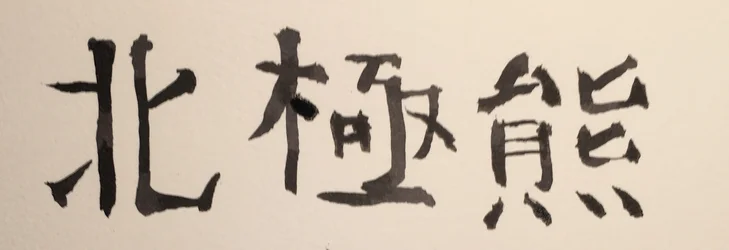 北極熊